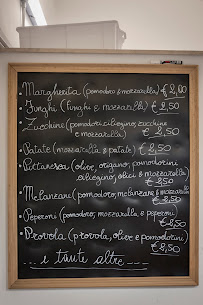 • Margherita (pomodoro & mozzarella) € 2,00
• Funghi (funghi & mozzarella) € 2,50
• Zucchine (pomodori ciliegino, zucchine
e mozzarella) € 2,50
• Patate (mozzarella & patate) € 2,50
olive, origano, pomodorini
ciliegino, olici & € 2,50
• Melanzani (pomodoro, melanzane & mozzarella)
€ 2,50
• Peperoni (pomodoro, mozzarella & peperoni)
€ 2,50
• Provola (provola, olive e pomodorini)
€ 2,50
... altre ...